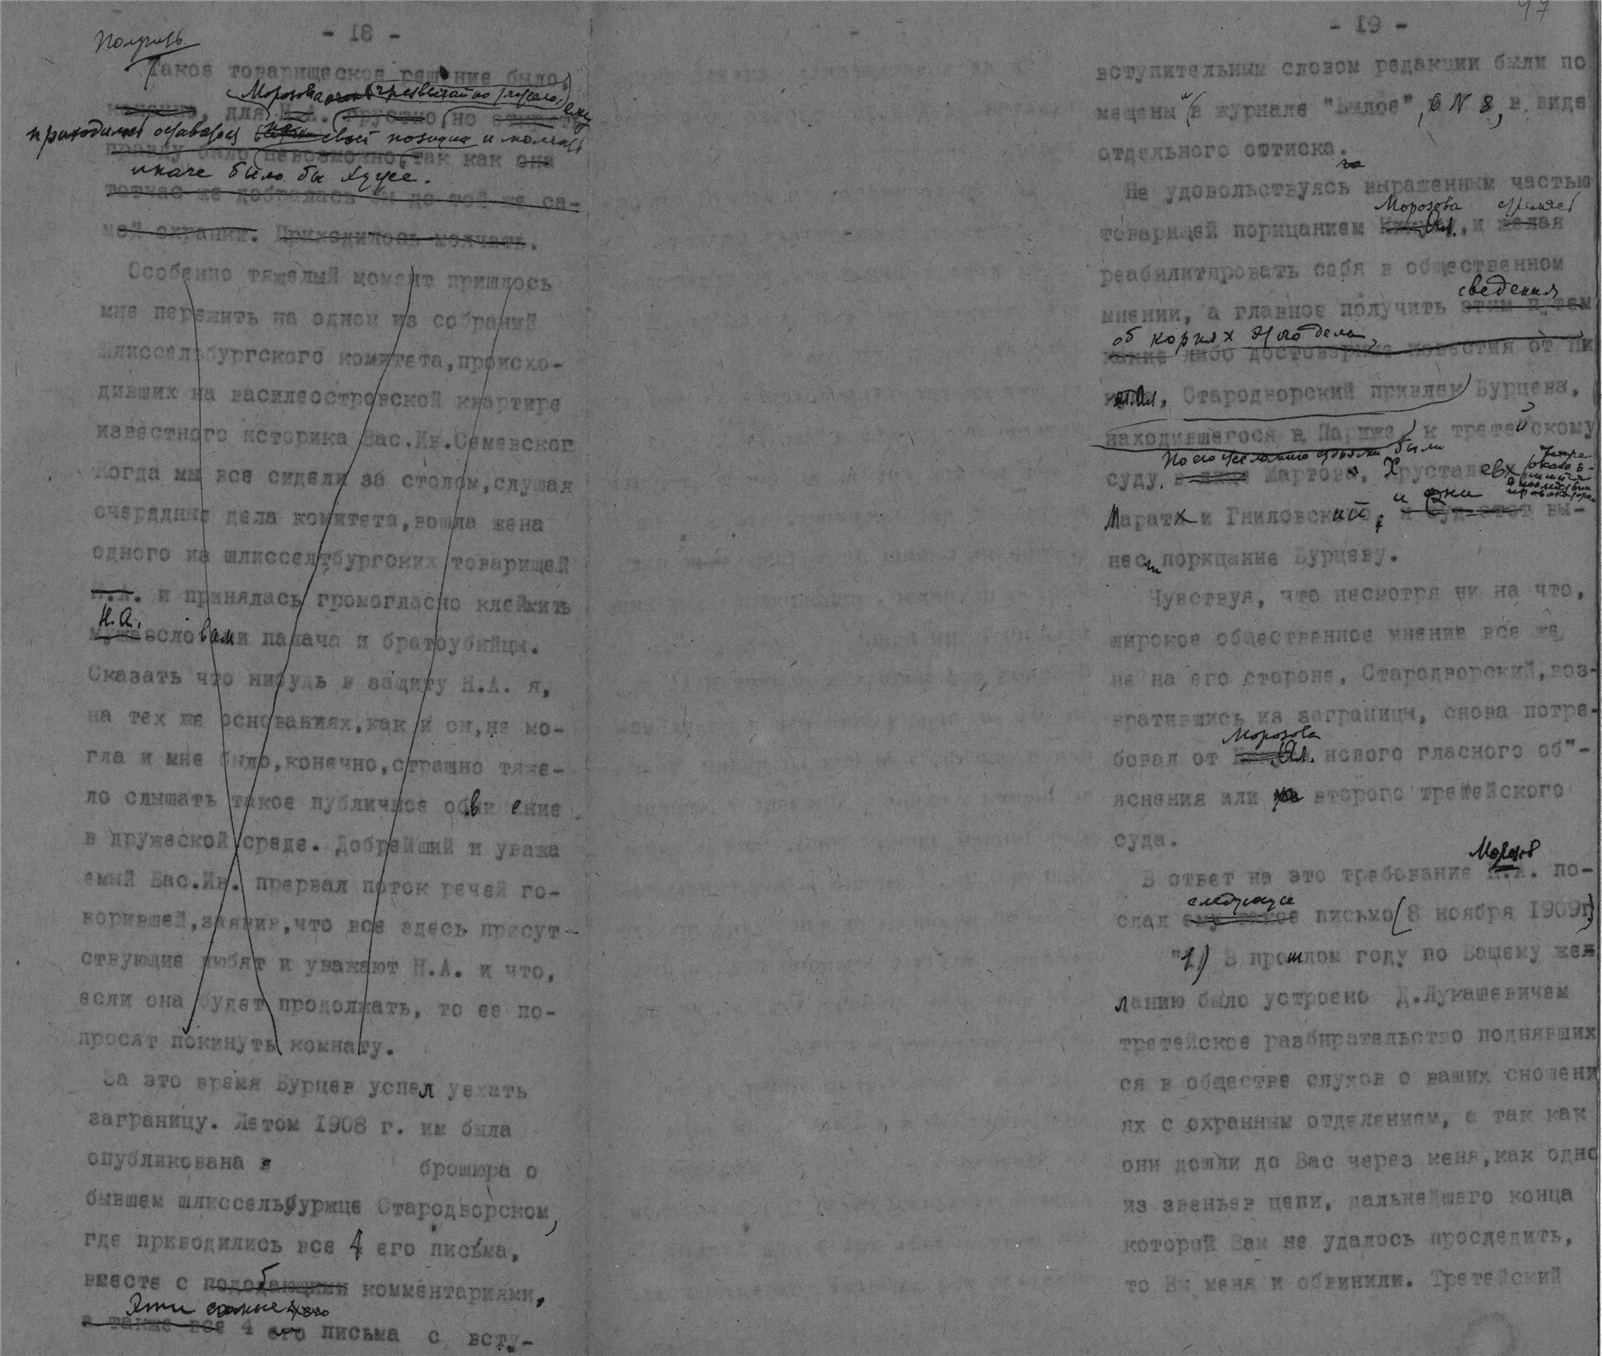 - 18 -
Получать
Такое товарищеское решение было
Морозова чрезвычайно тяжело,
, для Н.А. грустно, но
приходилось оставаться свой позиции и молчать
правду было невозможно, так как она
иначе было бы хуже.
тотчас же добралась бы до той же са-
мой охранки. Приходилось молчать.
Особенно тяжелый момент пришлось
мне пережить на одном из собраний
Шлиссельбургского комитета, происхо-
дивших на василеостровской квартире
известного историка Вас.Ив.Семевског
Когда мы все сидели за столом, слушая
очередные дела комитета, вошла жена
одного из шлисселтбургских товарищей
Н.А. и принялась громогласно клеймить
Н.А.
мужа словами палача и братоубийцы.
Сказать что нибудь в защиту Н.А. я,
на тех же основаниях, как и он, не мо-
гла и мне было, конечно, страшно тяже-
ло слышать такое публичное обвинение
в дружеской среде. Добрейший и уважа
емый Вас.Ив. прервал поток речей го-
ворившей, заявив, что все здесь присут-
ствующие любят и уважают Н.А. и что,
если она будет продолжать, то ее по-
просят покинуть комнату.
За это время Бурцев успел уехать
заграницу. Летом 1908 г. им была
опубликована в брошюра о
бывшем шлиссельбуржце Стародворском,
где приводились все 4 его письма,
вместе с подобающими комментариями,
Эти самые
а также все 4 его письма с всту-
- 19 - 97
вступительным словом редакции были по
мещены и в журнале "Былое", в N 8, в виде
отдельного оттиска.
Не удовольствуясь выраженным частью
Морозова
товарищей порицанием Ал., и желая
реабилитировать себя в общественном
сведения
мнении, а главное получить этим путем
об корнях этого дела,
какие либо достоверные известия от Ни
Ал, Стародворский привлек Бурцева,
находившегося в Париже, к третейскому
По его желанию судьями были
суду. в лице Мартова, Хрусталева
и они
Марат и Гниловский, и суд этот вы-
несли порицание Бурцеву.
Чувствуя, что несмотря ни на что,
широкое общественное мнение все же
не на его стороне, Стародворский, воз-
вратившись из заграницы, снова потре-
Морозова
бовал от Ал. нового гласного об"-
яснения или второго третейского
суда.
Морозов
В ответ на это требование Н.А. по-
следующее
слал ему такое письмо (8 ноября 1909г)
"1) В прошлом году по Вашему же
ланию было устроено Д.Лукашевичем
третейское разбирательство поднявших
ся в обществе слухов о ваших сношени
ях с охранным отделением, а так как
они дошли до Вас через меня, как одно
из звеньев цепи, дальнейшего конца
которой Вам не удалось проследить,
то Вы меня и обвинили. Третейский